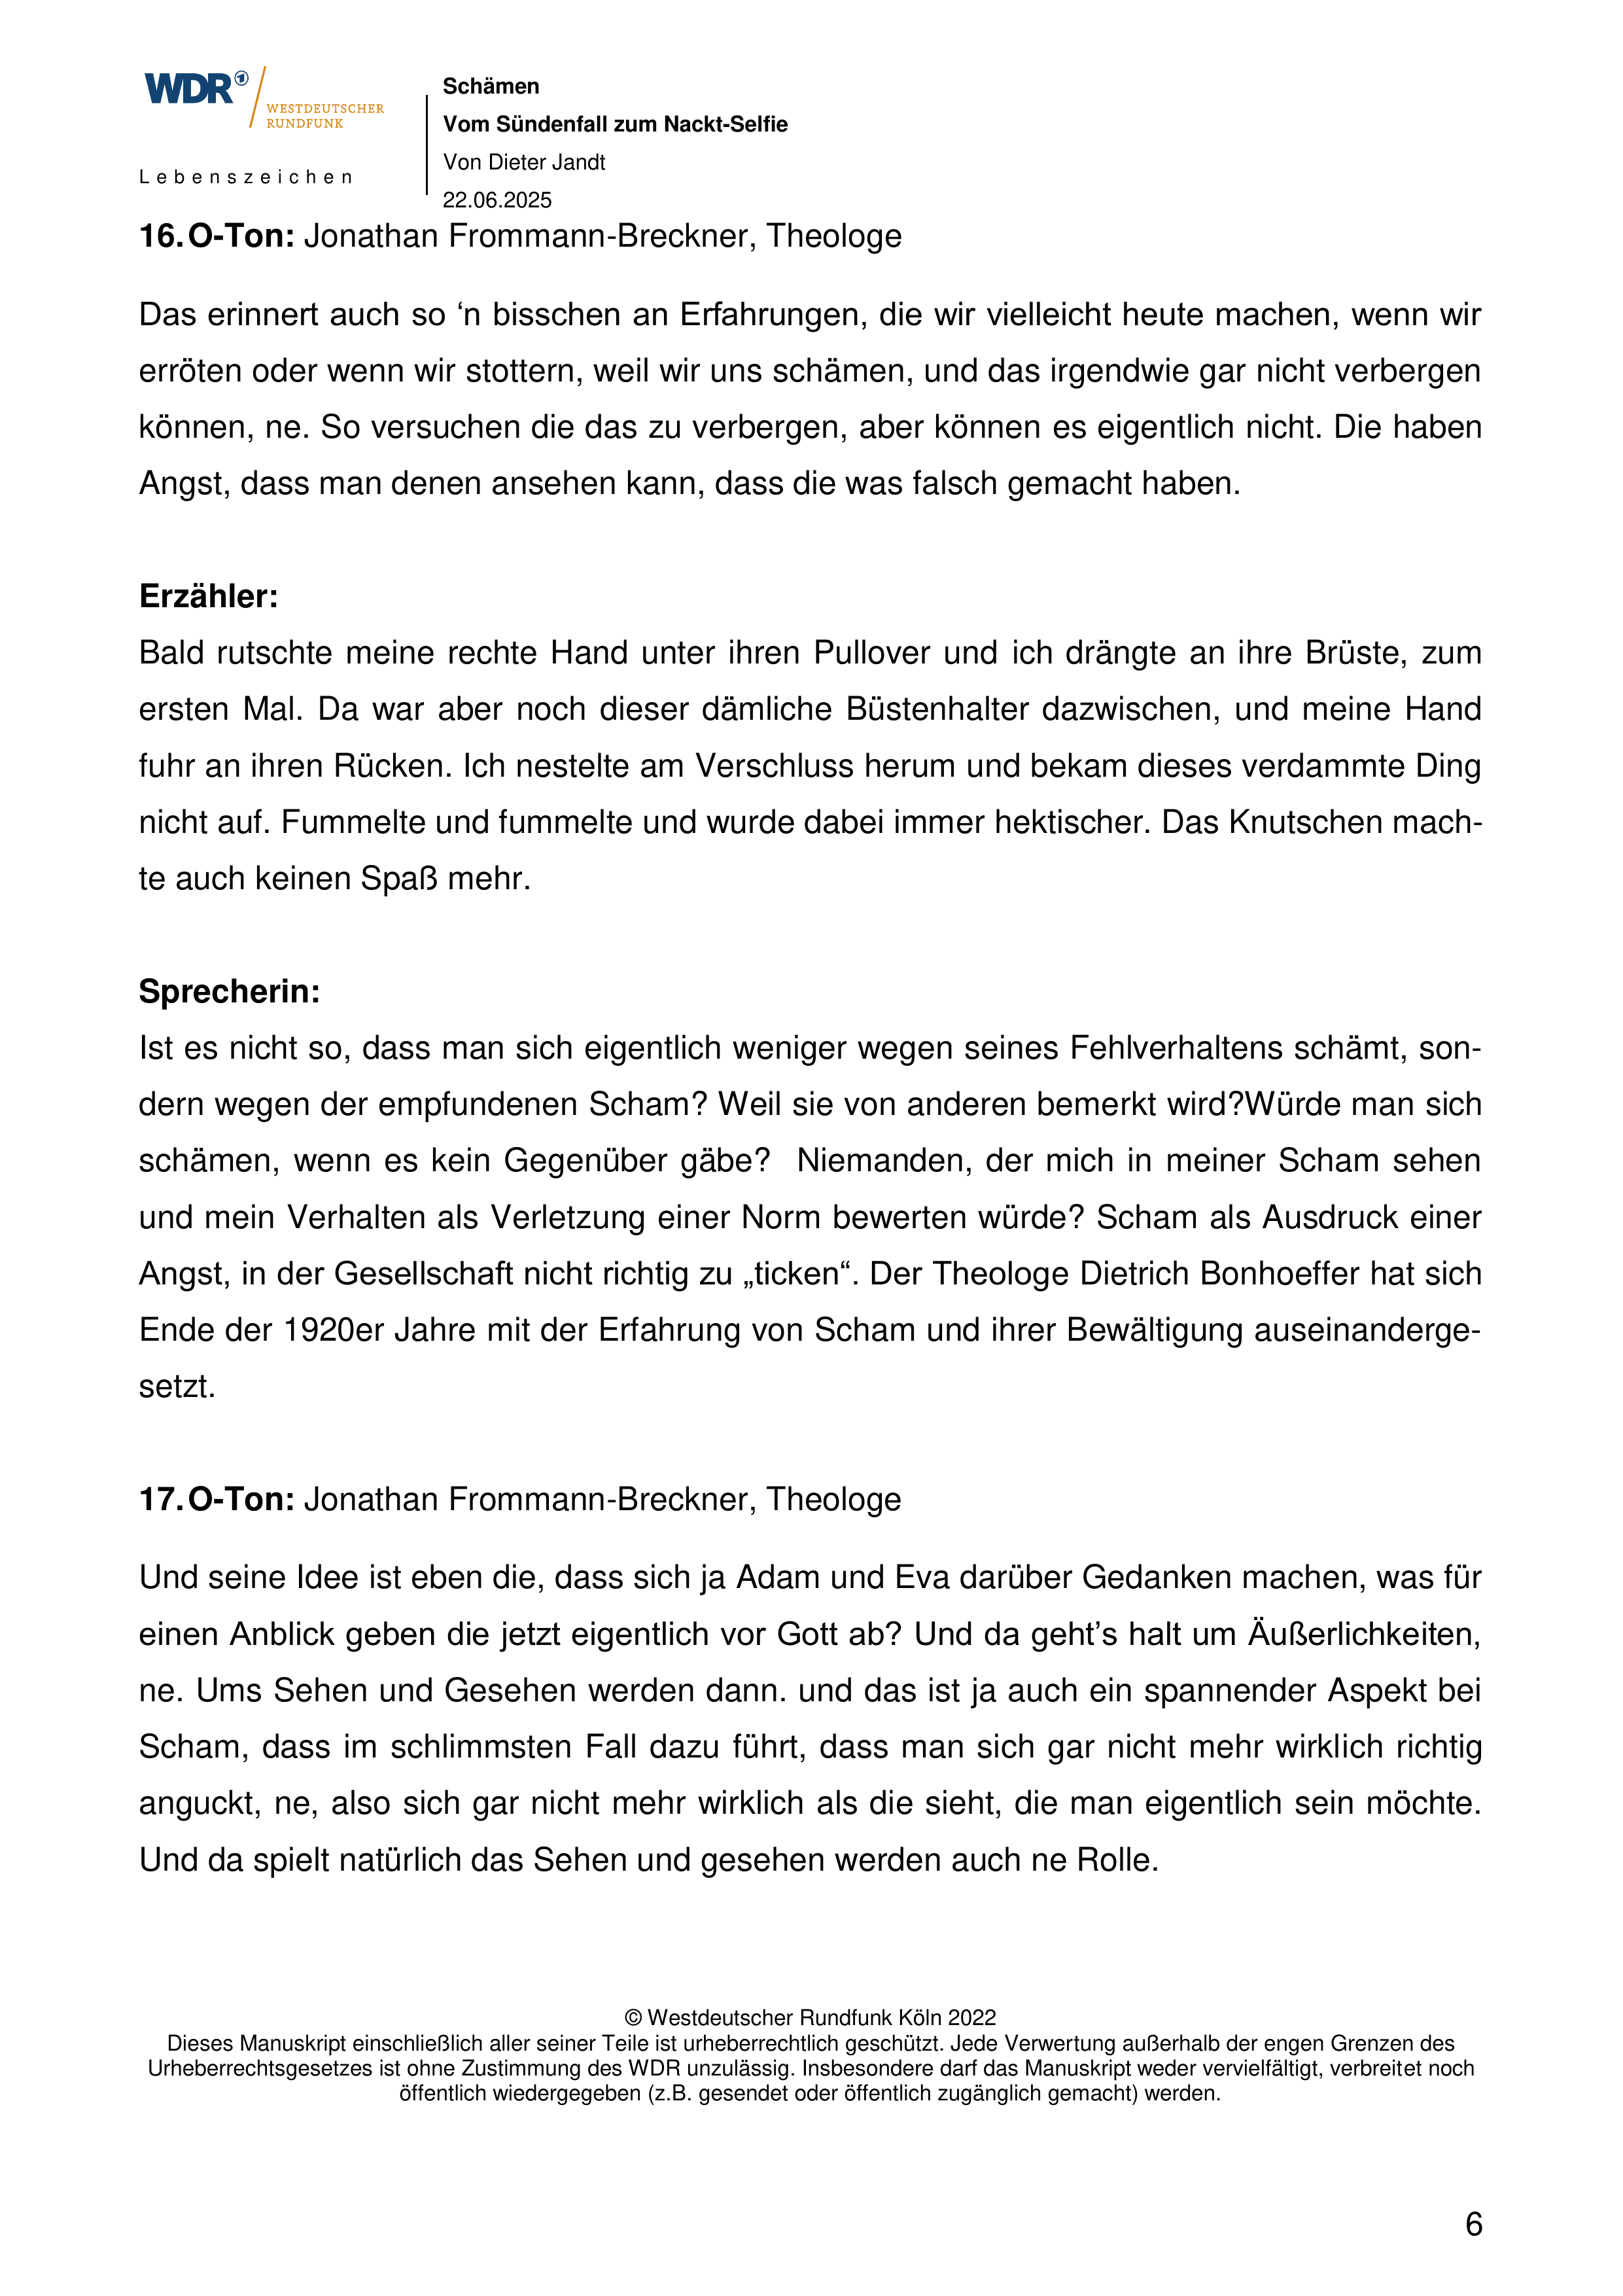 WDR
WESTDEUTSCHER
RUNDFUNK
Lebenszeichen
Schämen
Vom Sündenfall zum Nackt-Selfie
Von Dieter Jandt
22.06.2025
16. O-Ton: Jonathan Frommann-Breckner, Theologe
Das erinnert auch so ‘n bisschen an Erfahrungen, die wir vielleicht heute machen, wenn wir
erröten oder wenn wir stottern, weil wir uns schämen, und das irgendwie gar nicht verbergen
können, ne. So versuchen die das zu verbergen, aber können es eigentlich nicht. Die haben
Angst, dass man denen ansehen kann, dass die was falsch gemacht haben.
Erzähler:
Bald rutschte meine rechte Hand unter ihren Pullover und ich drängte an ihre Brüste, zum
ersten Mal. Da war aber noch dieser dämliche Büstenhalter dazwischen, und meine Hand
fuhr an ihren Rücken. Ich nestelte am Verschluss herum und bekam dieses verdammte Ding
nicht auf. Fummelte und fummelte und wurde dabei immer hektischer. Das Knutschen mach-
te auch keinen Spaß mehr.
Sprecherin:
Ist es nicht so, dass man sich eigentlich weniger wegen seines Fehlverhaltens schämt, son-
dern wegen der empfundenen Scham? Weil sie von anderen bemerkt wird?Würde man sich
schämen, wenn es kein Gegenüber gäbe?  Niemanden, der mich in meiner Scham sehen
und mein Verhalten als Verletzung einer Norm bewerten würde? Scham als Ausdruck einer
Angst, in der Gesellschaft nicht richtig zu „ticken“. Der Theologe Dietrich Bonhoeffer hat sich
Ende der 1920er Jahre mit der Erfahrung von Scham und ihrer Bewältigung auseinanderge-
setzt.
17. O-Ton: Jonathan Frommann-Breckner, Theologe
Und seine Idee ist eben die, dass sich ja Adam und Eva darüber Gedanken machen, was für
einen Anblick geben die jetzt eigentlich vor Gott ab? Und da geht’s halt um Äußerlichkeiten,
ne. Ums Sehen und Gesehen werden dann. und das ist ja auch ein spannender Aspekt bei
Scham, dass im schlimmsten Fall dazu führt, dass man sich gar nicht mehr wirklich richtig
anguckt, ne, also sich gar nicht mehr wirklich als die sieht, die man eigentlich sein möchte.
Und da spielt natürlich das Sehen und gesehen werden auch ne Rolle.
© Westdeutscher Rundfunk Köln 2022
Dieses Manuskript einschließlich aller seiner Teile ist urheberrechtlich geschützt. Jede Verwertung außerhalb der engen Grenzen des
Urheberrechtsgesetzes ist ohne Zustimmung des WDR unzulässig. Insbesondere darf das Manuskript weder vervielfältigt, verbreitet noch
öffentlich wiedergegeben (z.B. gesendet oder öffentlich zugänglich gemacht) werden.
6